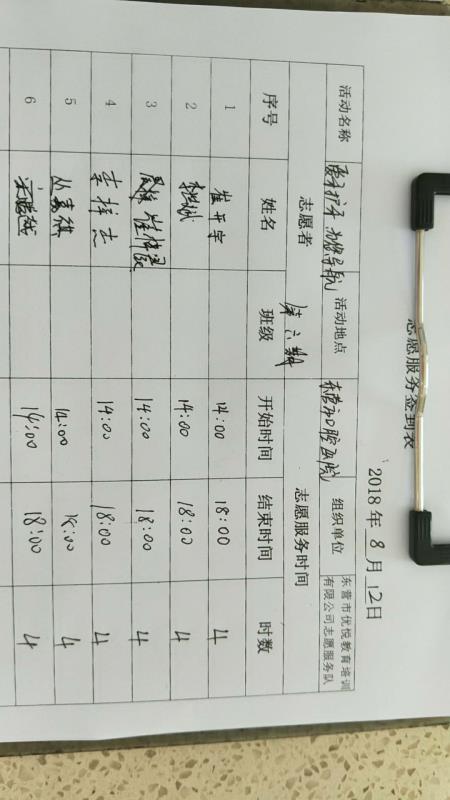 志愿服务签到表
2018 年 8 月 12日
活动名称 爱牙护牙 为您导航 活动地点 东营市口腔医院 组织单位 东营市优悦教育培训有限公司志愿服务队
志愿者 第六期 志愿服务时间
序号 姓名 班级 开始时间 结束时间 时数
1 崔开宇 14:00 18:00 4
2 14:00 18:00 4
3 14:00 18:00 4
4 李梓杰 14:00 18:00 4
5 丛嘉祺 14:00 18:00 4
6 14:00 18:00 4